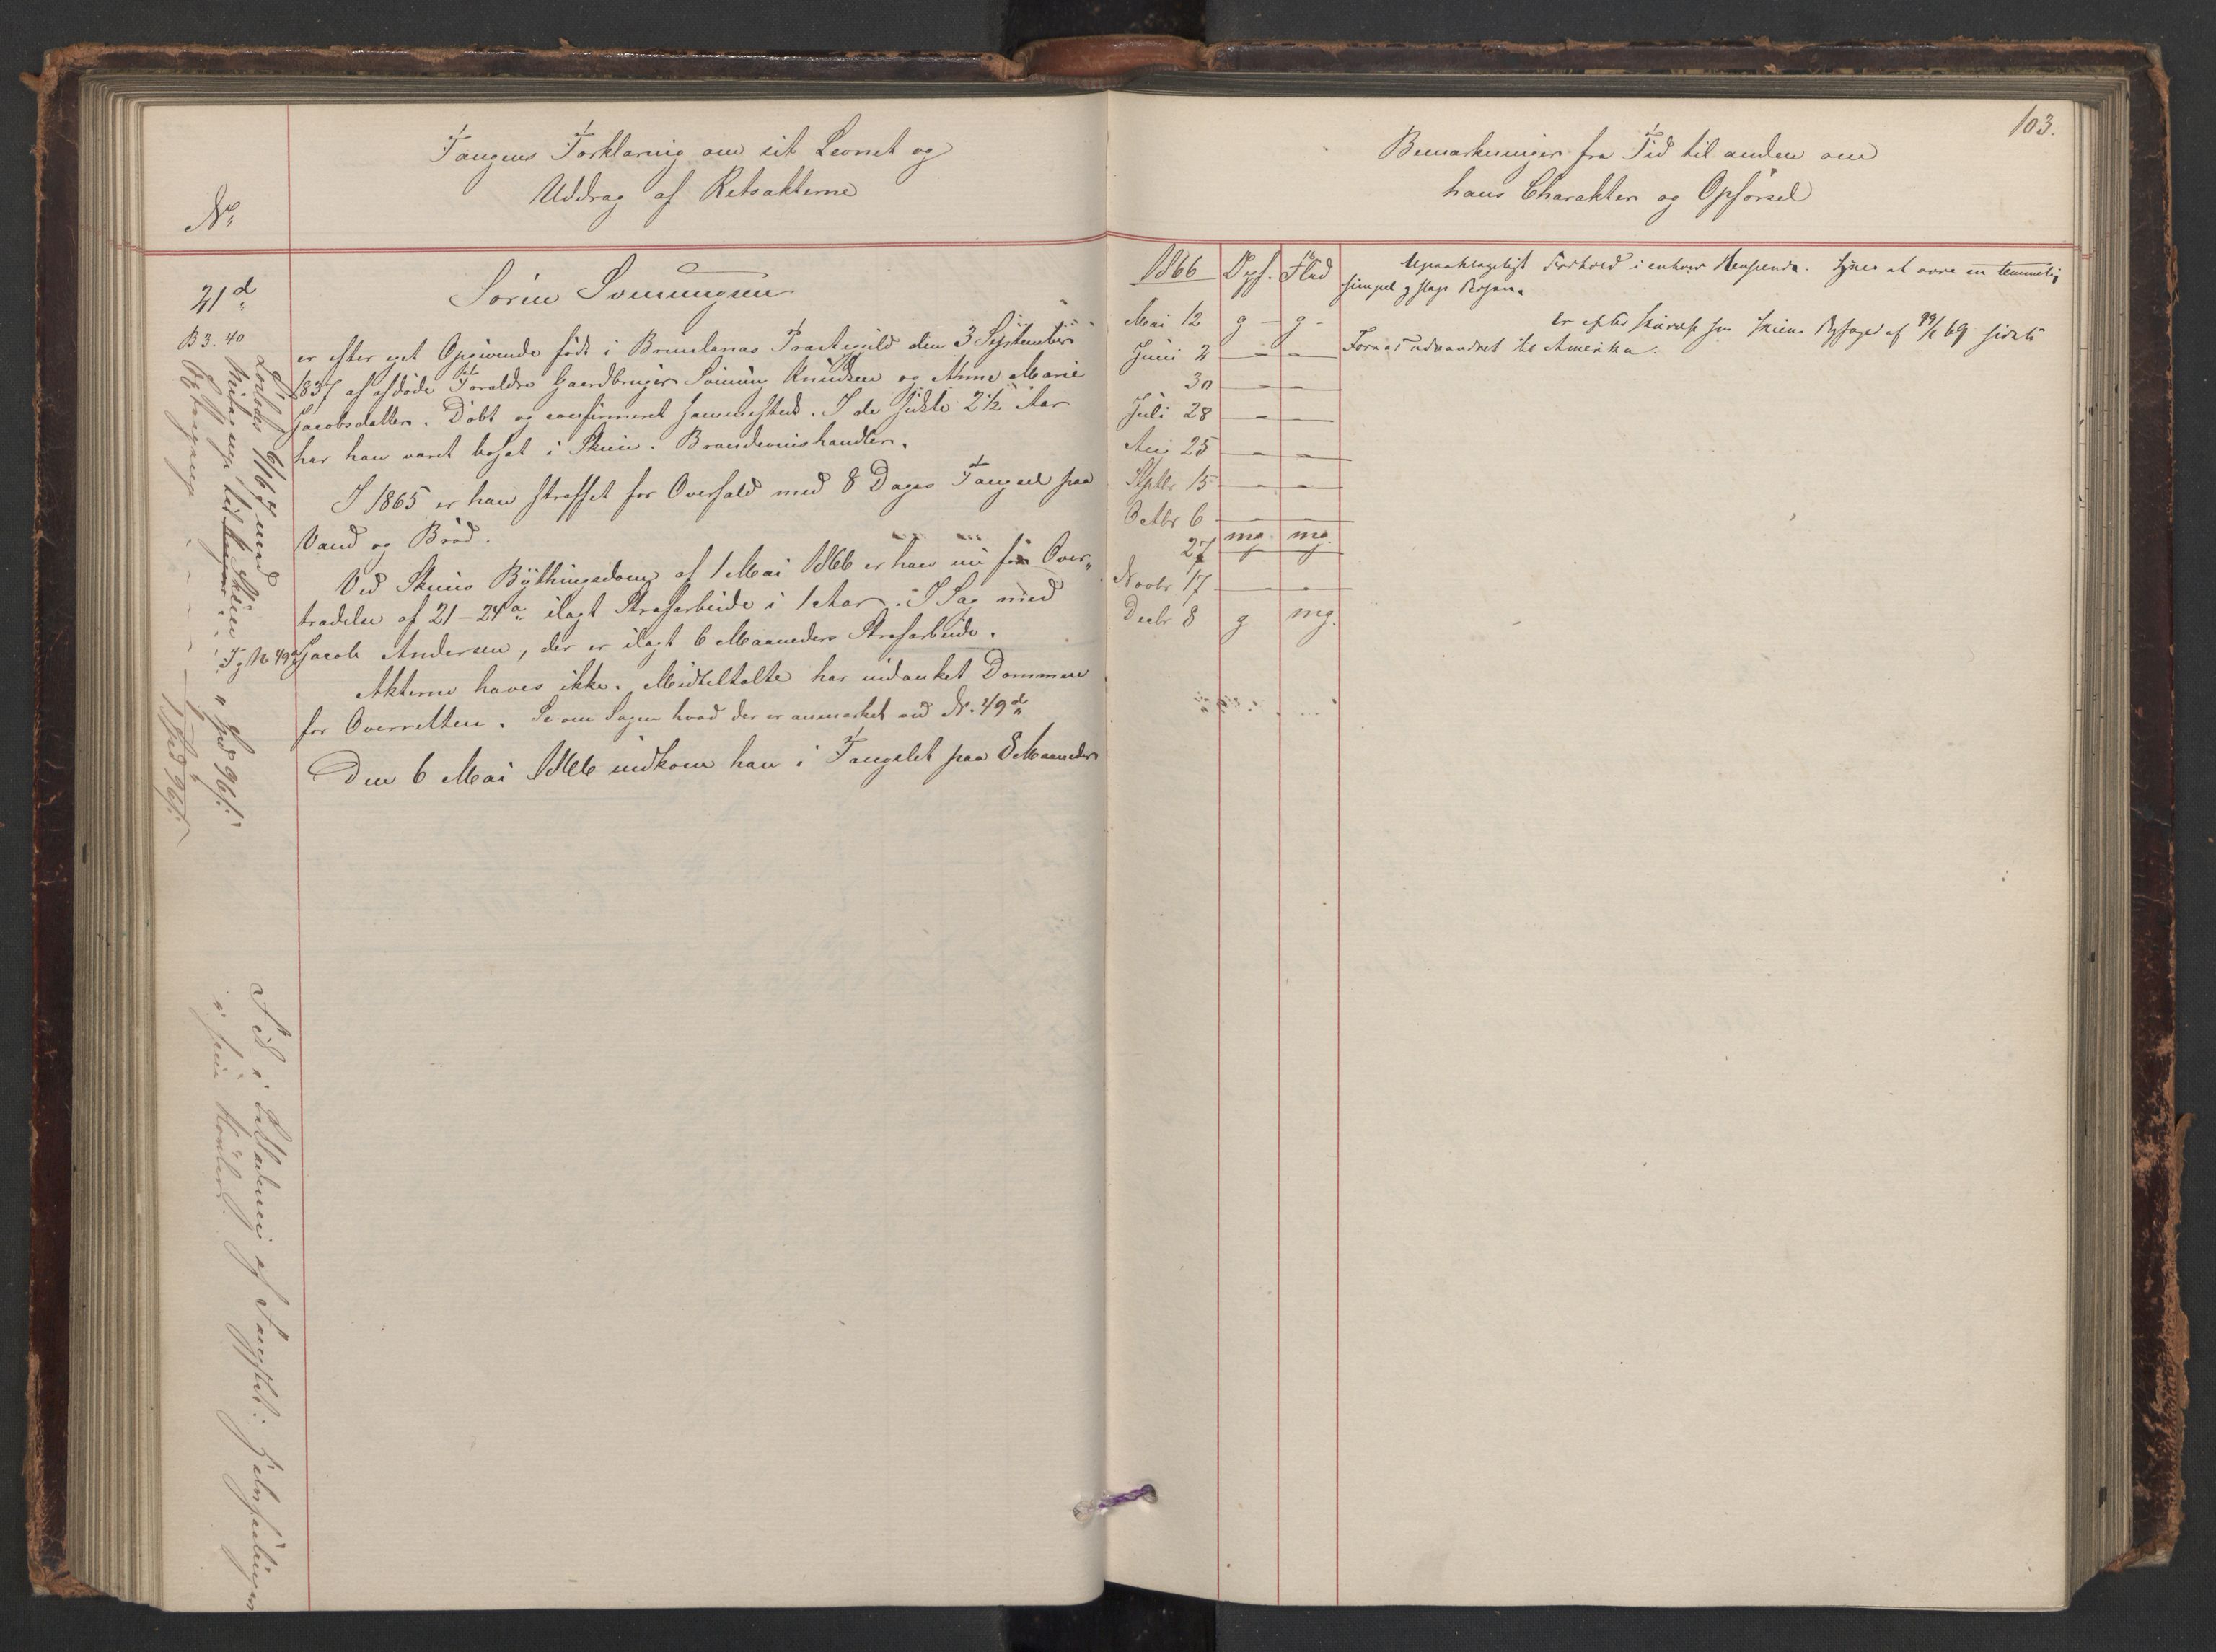 Fangens Forklaring om sit Levnet og
Uddrag af Retsakterne
No
21d
B 3. 40
Sören Svenungsen
er efter eget Opgivende född i Brunlanæs Præstegjeld den 3 September
1837 af afdöde Forældre Gaardbruger Svenung Knudsen og Anne Marie
Jacobsdatter. Döbt og confirmeret sammesteds. I de sidste 2½ Aar
har han været bosat i Skien. Brændevinshandler.
I 1865 er han straffet for Overfald med 8 Dages Fængsel paa
Vand og Bröd.
Ved Skiens Bythingsdom af 1 Mai 1866 er han nu for Over„
trædelse af 21 – 24 a ilagt Strafarbeide i 1 Aar. I Sag med
Jacob Andersen, der er ilagt 6 Maaneders Strafarbeide.
Akterne haves ikke. Meddeltalte har indanket Dommen
for Overretten. Se om Sagen hvad der er anmærket ved No. 49 d
Den 6 Mai 1866 indkom han i Fængslet paa 8 Maaneder
Löslodes 6/1 67 med
til Skien
J. No 49
1 Spd 96 s:
af Fængslet:
103.
Bemærkninger fra Tid til anden om
hans Charakter og Opförsel
1866 Opf. Flid
Mai 12 g – g –
Juni 2 – –
30 – –
Juli 28 – –
Aug 25 – –
Septbr 15 – –
Octbr 6 – –
27 mg mg.
Novbr 17 – –
Decbr 8 g mg.
Upaaklageligt Forhold i enhver Henseende. Synes at være en temmelig
simpel og Person.
er efter fra Skiens Byfoged af 29/6 69 sidste
Foraar udvandret til Amerika.